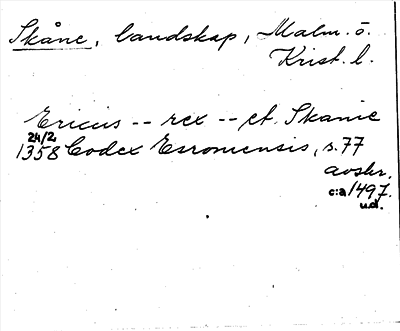 Skåne, landskap, Malm. o.
Krist. l.
Ericus -- rex -- et. Skanie
24/2
1358 Codex Esromensis, s. 77
avskr.
c:a/497.
u.d.